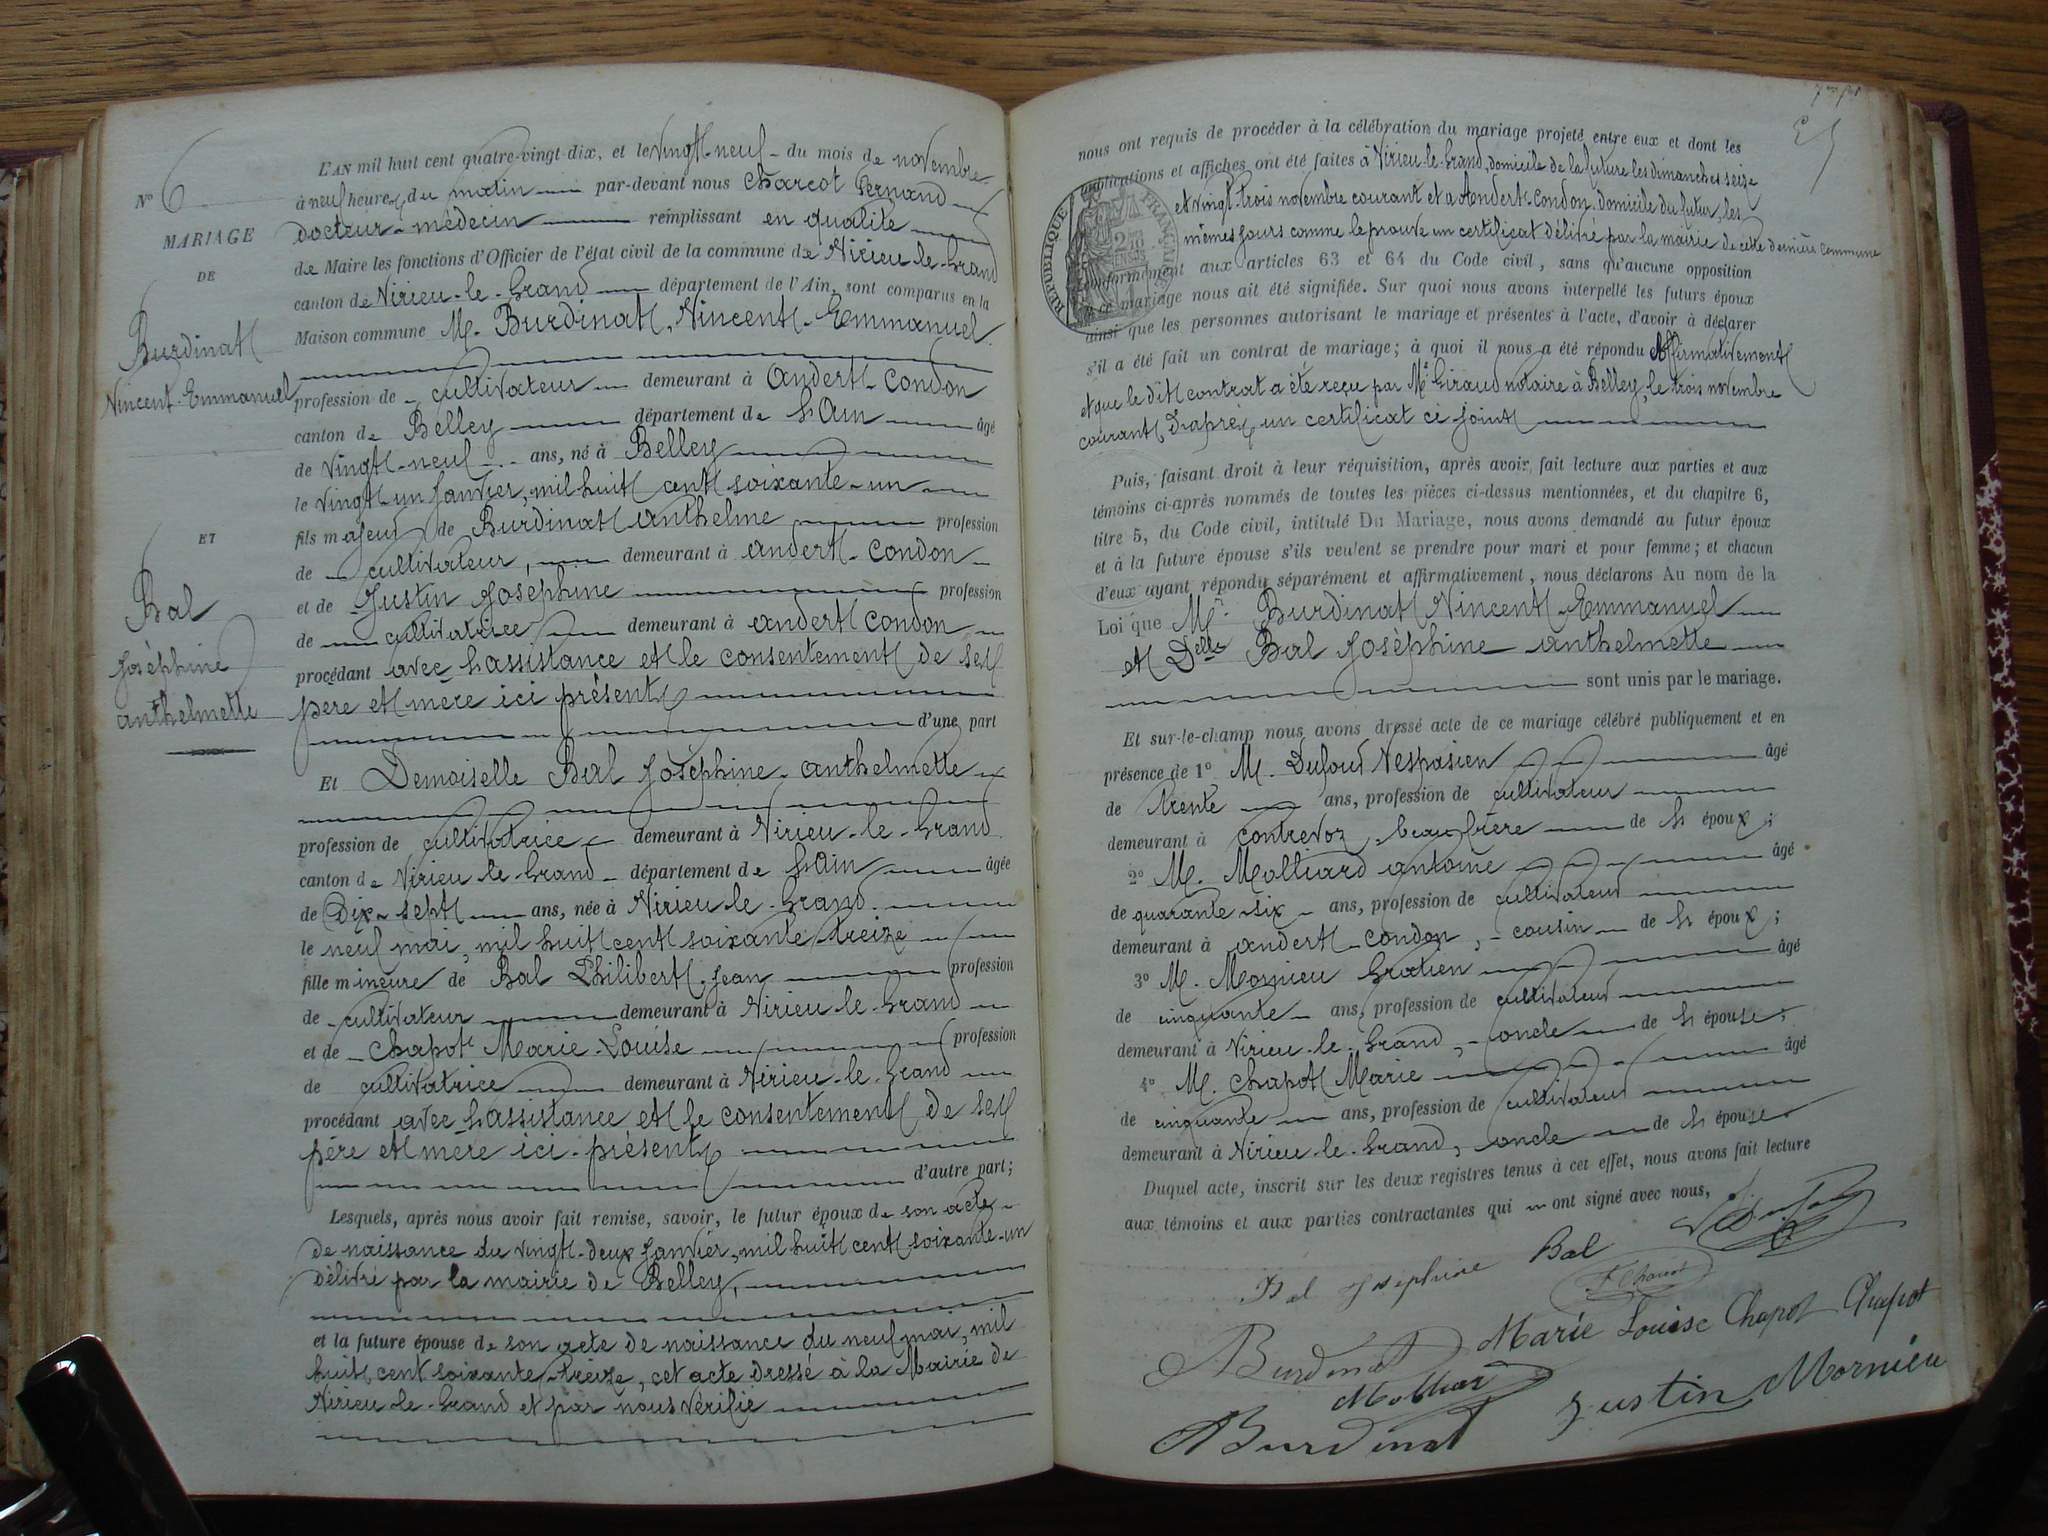 N° 6
MARIAGE
DE
Burdinat
Vincent-Emmanuel
ET
Bal
Joséphine
anthelmette
L'AN mil huit cent quatre-vingt-dix, et le vingt-neuf du mois de novembre
à neuf heures du matin par-devant nous Charcot Fernand
docteur-médecin remplissant en qualité
de Maire les fonctions d'Officier de l'état civil de la commune de Virieu-le-Grand
canton de Virieu-le-Grand département de l'Ain, sont comparus en la
Maison commune M. Burdinat, Vincent-Emmanuel
profession de cultivateur demeurant à andert-condon
canton de Belley département de l'Ain âgé
de vingt-neuf ans, né à Belley
le vingt-un Janvier, mil huit cent soixante-un
fils majeur de Burdinat anthelme profession
de cultivateur, demeurant à andert-condon
et de Justin Joséphine profession
de cultivatrice demeurant à andert condon
procédant avec l'assistance et le consentement de ses
père et mere ici présents
d'une part
Et Demoiselle Bal Joséphine-anthelmette
profession de cultivatrice demeurant à Virieu-le-Grand
canton de Virieu-le-Grand département de l'Ain âgée
de Dix-sept ans, née à Virieu-le-Grand
le neuf mai, mil huit cent soixante-treize
fille mineure de Bal Philibert-Jean profession
de cultivateur demeurant à Virieu-le-Grand
et de Chapot Marie-Louise profession
de cultivatrice demeurant à Virieu-le-Grand
procédant avec l'assistance et le consentement de ses
père et mere ici-présents
d'autre part;
Lesquels, après nous avoir fait remise, savoir, le futur époux de son acte
de naissance du vingt-deux Janvier, mil huit cent soixante-un
délivré par la mairie de Belley,
et la future épouse de son acte de naissance du neuf mai, mil
huit cent soixante-treize, cet acte dressé à la Mairie de
Virieu-le-Grand et par nous vérifié
nous ont requis de procéder à la célébration du mariage projeté entre eux et dont les
publications et affiches ont été faites à Virieu-le-Grand, domicile de la future les dimanches seize
et vingt-trois novembre courant et a Andert-Condon, domicile du futur, les
mêmes jours comme le prouve un certificat délivré par la mairie de cette dernière commune
RÉPUBLIQUE FRANÇAISE
conformément aux articles 63 et 64 du Code civil, sans qu'aucune opposition
à ce mariage nous ait été signifiée. Sur quoi nous avons interpellé les futurs époux
ainsi que les personnes autorisant le mariage et présentes à l'acte, d'avoir à déclarer
s'il a été fait un contrat de mariage; à quoi il nous a été répondu Affirmativement
et que le dit contrat a été reçu par Me Giraud notaire à Belley, le trois novembre
courant, D'après un certificat ci joint
Puis, faisant droit à leur réquisition, après avoir fait lecture aux parties et aux
témoins ci-après nommés de toutes les pièces ci-dessus mentionnées, et du chapitre 6,
titre 5, du Code civil, intitulé Du Mariage, nous avons demandé au futur époux
et à la future épouse s'ils veulent se prendre pour mari et pour femme; et chacun
d'eux ayant répondu séparément et affirmativement, nous déclarons Au nom de la
Loi que Mr Burdinat Vincent-Emmanuel
et Delle Bal Joséphine anthelmette
sont unis par le mariage.
Et sur-le-champ nous avons dressé acte de ce mariage célébré publiquement et en
présence de 1° M. Dufour Vespasien âgé
de trente ans, profession de cultivateur
demeurant à contrevoz, beau frère de l'époux;
2° M. Molliard antoine âgé
de quarante-six ans, profession de cultivateur
demeurant à andert-condon, cousin de l'époux;
3° M. Mornieu Gratien âgé
de cinquante ans, profession de cultivateur
demeurant à Virieu-le-Grand, oncle de l'épouse;
4° M. Chapot Marie âgé
de cinquante ans, profession de cultivateur
demeurant à Virieu-le-Grand, oncle de l'épouse
Duquel acte, inscrit sur les deux registres tenus à cet effet, nous avons fait lecture
aux témoins et aux parties contractantes qui ont signé avec nous,
Bal Josephine Bal
F. Charcot
Burdinat Marie Louise Chapot Chapot
Molliard
Burdinat Justin Mornieu